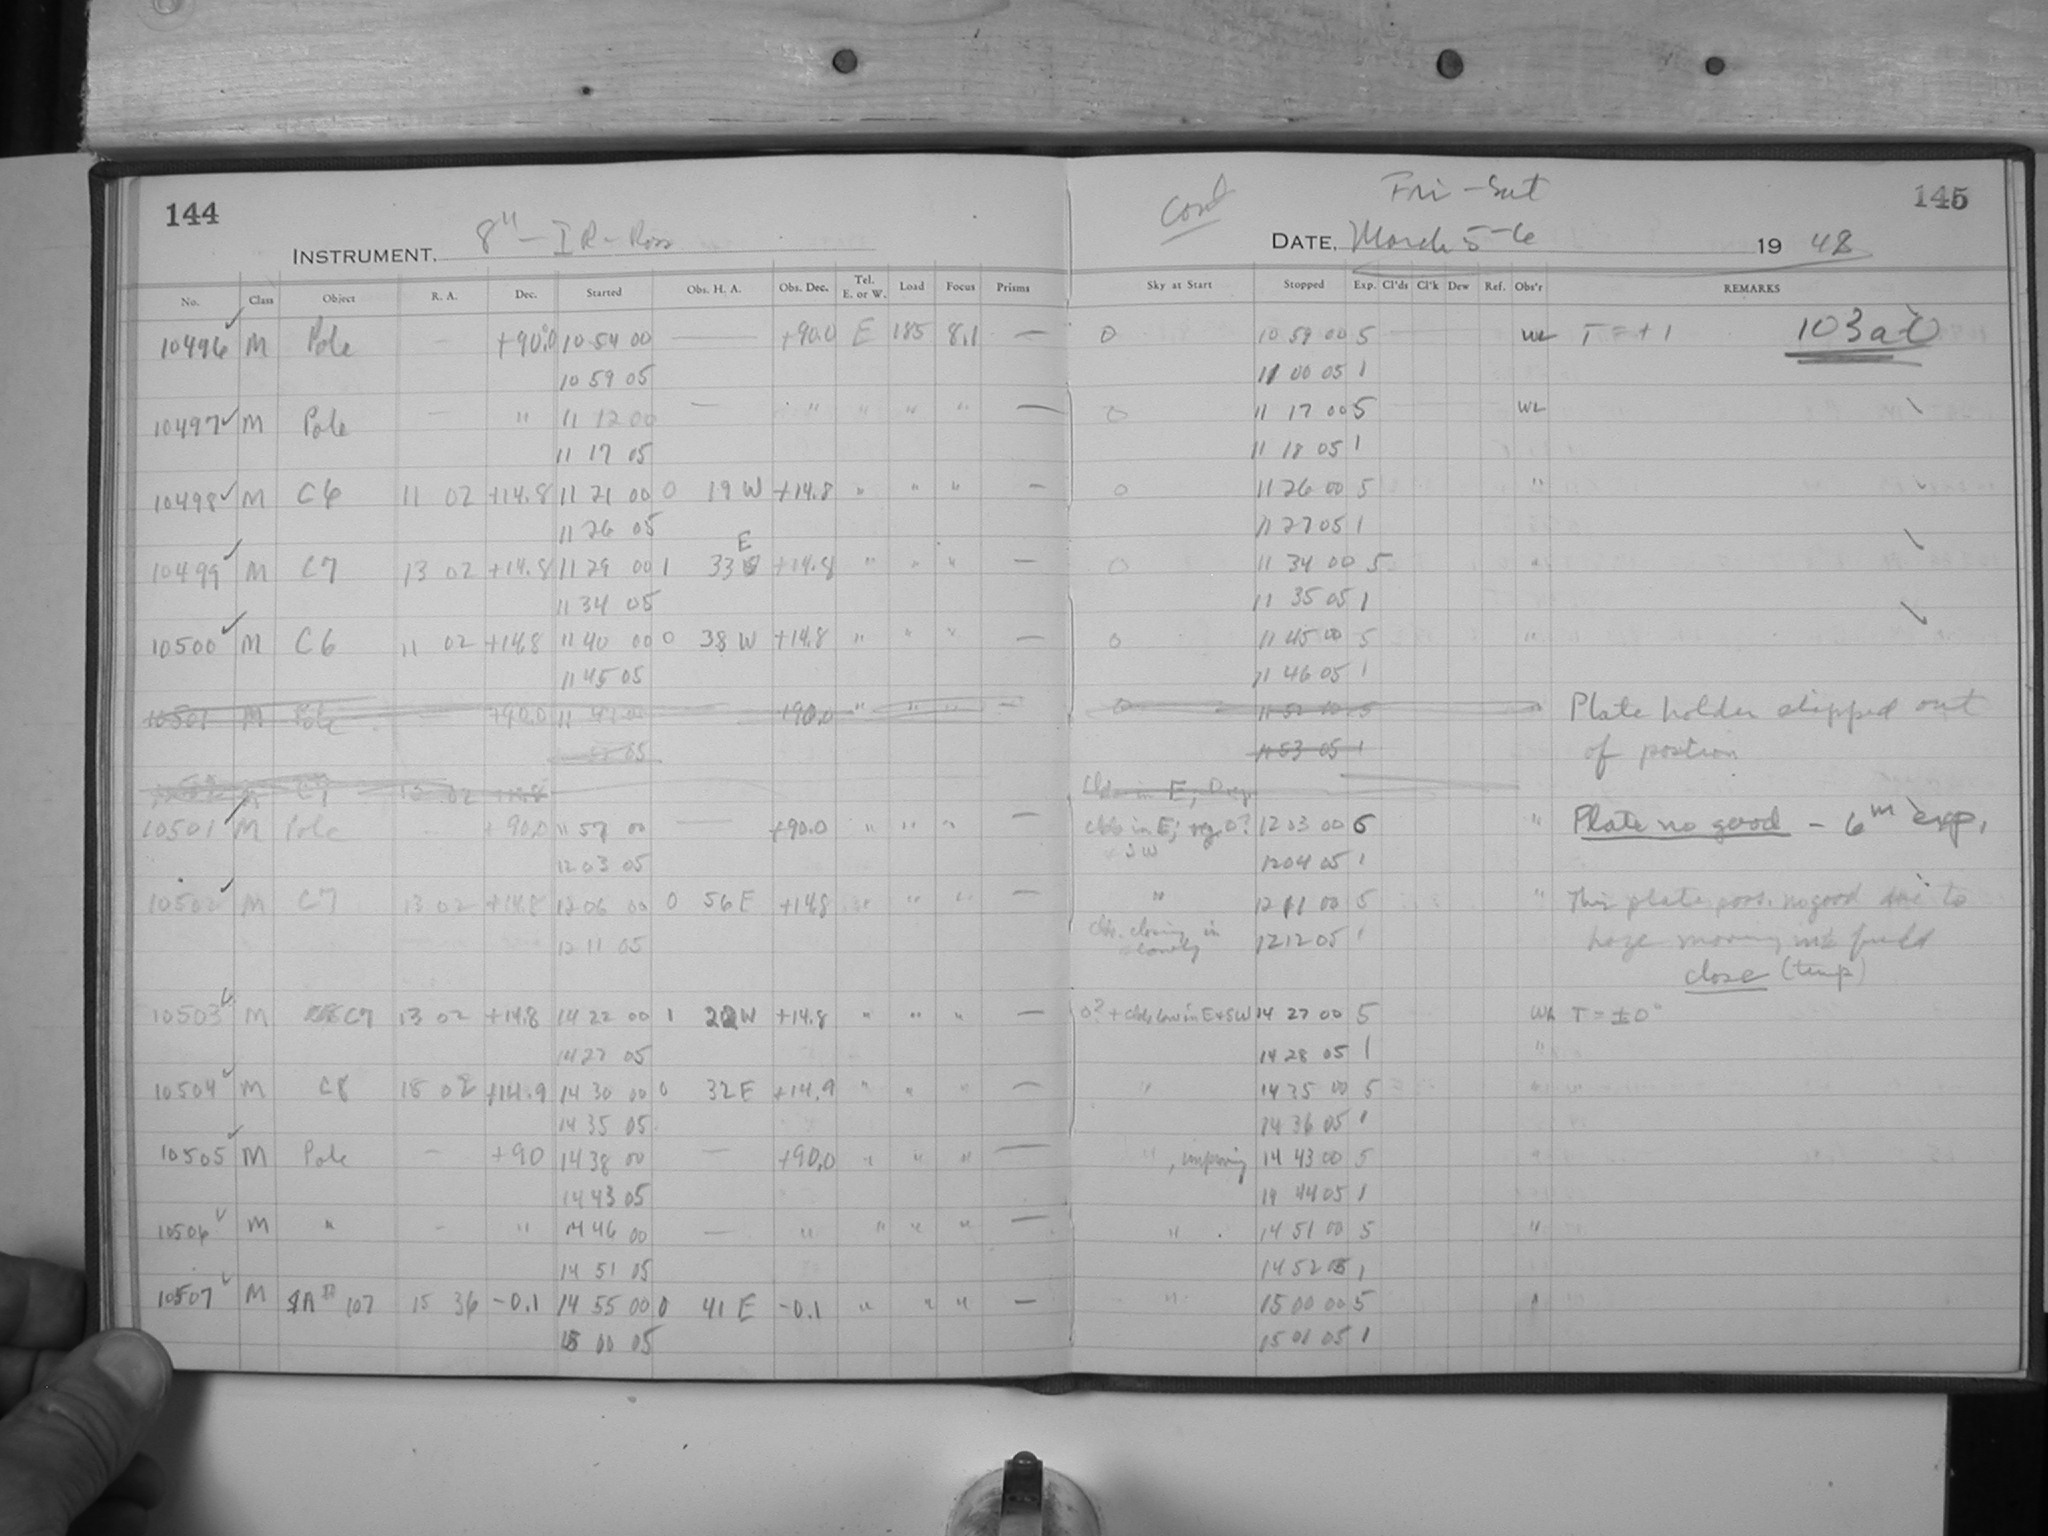 144
INSTRUMENT. 8" - I R - Ross
No. Class Object R. A. Dec. Started Obs. H. A. Obs. Dec. Tel. E. or W. Load Focus Prisms
10496 ✓ M Pole — +90.0 10 54 00 — +90.0 E 185 8.1 —
10 59 05
10497 ✓ M Pole — " 11 12 00 — " " " " —
11 17 05
10498 ✓ M C6 11 02 +14.8 11 21 00 0 19 W +14.8 " " " —
11 26 05
10499 ✓ M C7 13 02 +14.8 11 29 00 1 33 E +14.8 " " " —
11 34 05
10500 ✓ M C6 11 02 +14.8 11 40 00 0 38 W +14.8 " " " —
11 45 05
10501 M Pole — +90.0 11 47 00 +90.0 " " " —
05
M C7 13 02 +14.8
10501 ✓ M Pole — +90.0 11 57 00 — +90.0 " " " —
12 03 05
10502 ✓ M C7 13 02 +14.8 12 06 00 0 56 E +14.8 " " " —
12 11 05
10503 ✓ M C7 13 02 +14.8 14 22 00 1 22 W +14.8 " " " —
14 27 05
10504 ✓ M C8 15 02 +14.9 14 30 00 0 32 E +14.9 " " " —
14 35 05
10505 ✓ M Pole — +90 14 38 00 — +90.0 " " " —
14 43 05
10506 ✓ M " — " 14 46 00 — " " " " —
14 51 05
10507 ✓ M SA 107 15 36 -0.1 14 55 00 0 41 E -0.1 " " " —
15 00 05
Cont Fri - Sat 145
DATE. March 5-6 19 48
Sky at Start Stopped Exp. Cl'ds Cl'k Dew Ref. Obs'r REMARKS
0 10 59 00 5 WL T = +1 103a-O
11 00 05 1
0 11 17 00 5 WL ✓
11 18 05 1
0 11 26 00 5 " ✓
11 27 05 1
0 11 34 00 5 " ✓
11 35 05 1
0 11 45 00 5 " ✓
11 46 05 1
0 11 52 00 5 Plate holder slipped out
11 53 05 1 of position
Clds in E;
clds in E; 0? 12 03 00 6 " Plate no good - 6m exp.
12 04 05 1
" 12 11 00 5 " This plate poss. no good due to
clds. closing in slowly 12 12 05 1 haze moving into field
close (temp)
0? + clds low in E+SW 14 27 00 5 WL T = ±0°
14 28 05 1 "
" 14 35 00 5 "
14 36 05 1
", improving 14 43 00 5 "
14 44 05 1
" 14 51 00 5 "
14 52 05 1
" 15 00 00 5 "
15 01 05 1